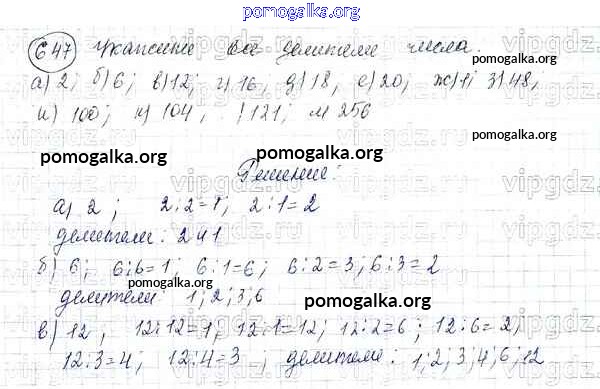 pomogalka.org
647 Укажите все делители числа.
а) 2; б) 6; в) 12; г) 16, д) 18, е) 20; ж) 1; з) 48,
и) 100; к) 104, л) 121; м 256
pomogalka.org
pomogalka.org
pomogalka.org
Решение:
а) 2; 2:2=1; 2:1=2
делители: 2 и 1
pomogalka.org
б) 6; 6:6=1; 6:1=6; 6:2=3; 6:3=2
делители: 1; 2; 3; 6
pomogalka.org
pomogalka.org
в) 12, 12:12=1, 12:1=12; 12:2=6; 12:6=2;
12:3=4; 12:4=3, делители: 1; 2; 3; 4; 6; 12
pomogalka.org